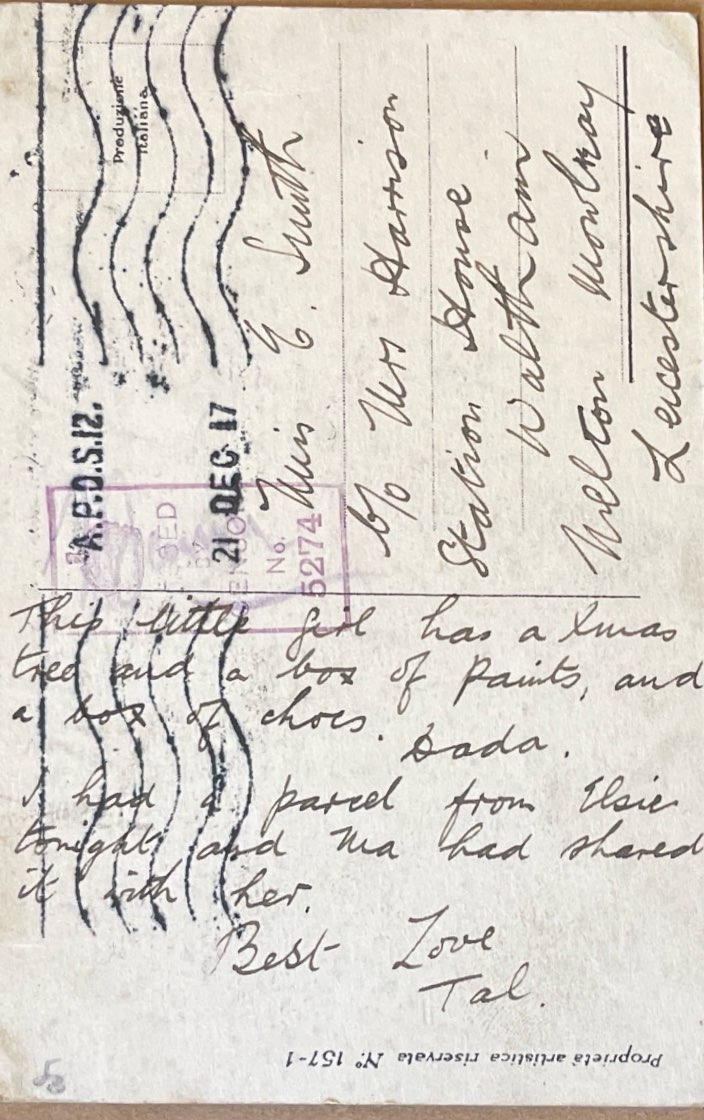 This little girl has a Xmas
tree and a box of paints, and
a box of chocs.
Dada.
I had a parcel from Elsie
tonight and Ma had shared
it with her.
Best Love
Tal.
Miss E. Smith
c/o Mrs Harrison
Station House
Waltham
Melton Mowbray
Leicestershire
Produzione
Italiana
A.P.O.S.12.
21 DEC 17
No.
5274
Proprietà artistica riservata N° 157-1